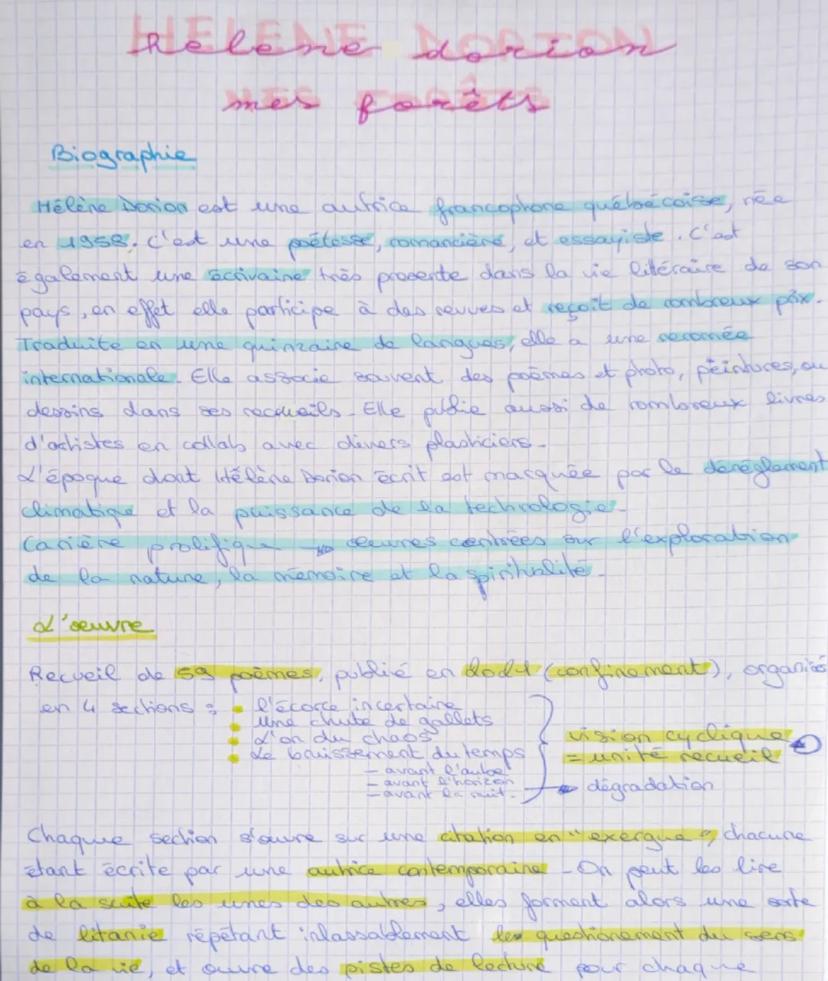 Hélène dorion
mes forêts
Biographie
Hélène Dorion est une autrice francophone québécoise, née
en 1958. C'est une poétesse, romancière, et essayiste. C'est
également une écrivaine très présente dans la vie litéraire de son
pays, en effet elle participe à des revues et reçoit de nombreux prix.
Traduite en une quinzaine de langues, elle a une renomée
internationale. Elle associe souvent des poèmes et photo, peintures, ou
dessins dans ses recueils. Elle publie aussi de nombreux livres
d'artistes en collab avec divers plasticiers.
L'époque dont Hélène Dorion écrit est marquée par le dérèglement
climatique et la puissance de la technologie.
Carière prolifique → œuvres centrées sur l'exploration
de la nature, la mémoire et la spiritualité.
L'œuvre
Recueil de 59 poèmes, publié en 2021 (confinement), organisé
en 4 sections : • l'écorce incertaine
• une chute de gallets
• L'on du chaos
• Le bruissement du temps
– avant l'aube
– avant l'horizon
– avant la nuit.
vision cyclique
= unité recueil
→ dégradation
Chaque section s'ouvre sur une citation en "exergue", chacune
étant écrite par une autrice contemporaine. On peut les lire
à la suite les unes des autres, elles forment alors une sorte
de litanie répétant inlassablement les questionement du sens
de la vie, et ouvre des pistes de lecture pour chaque